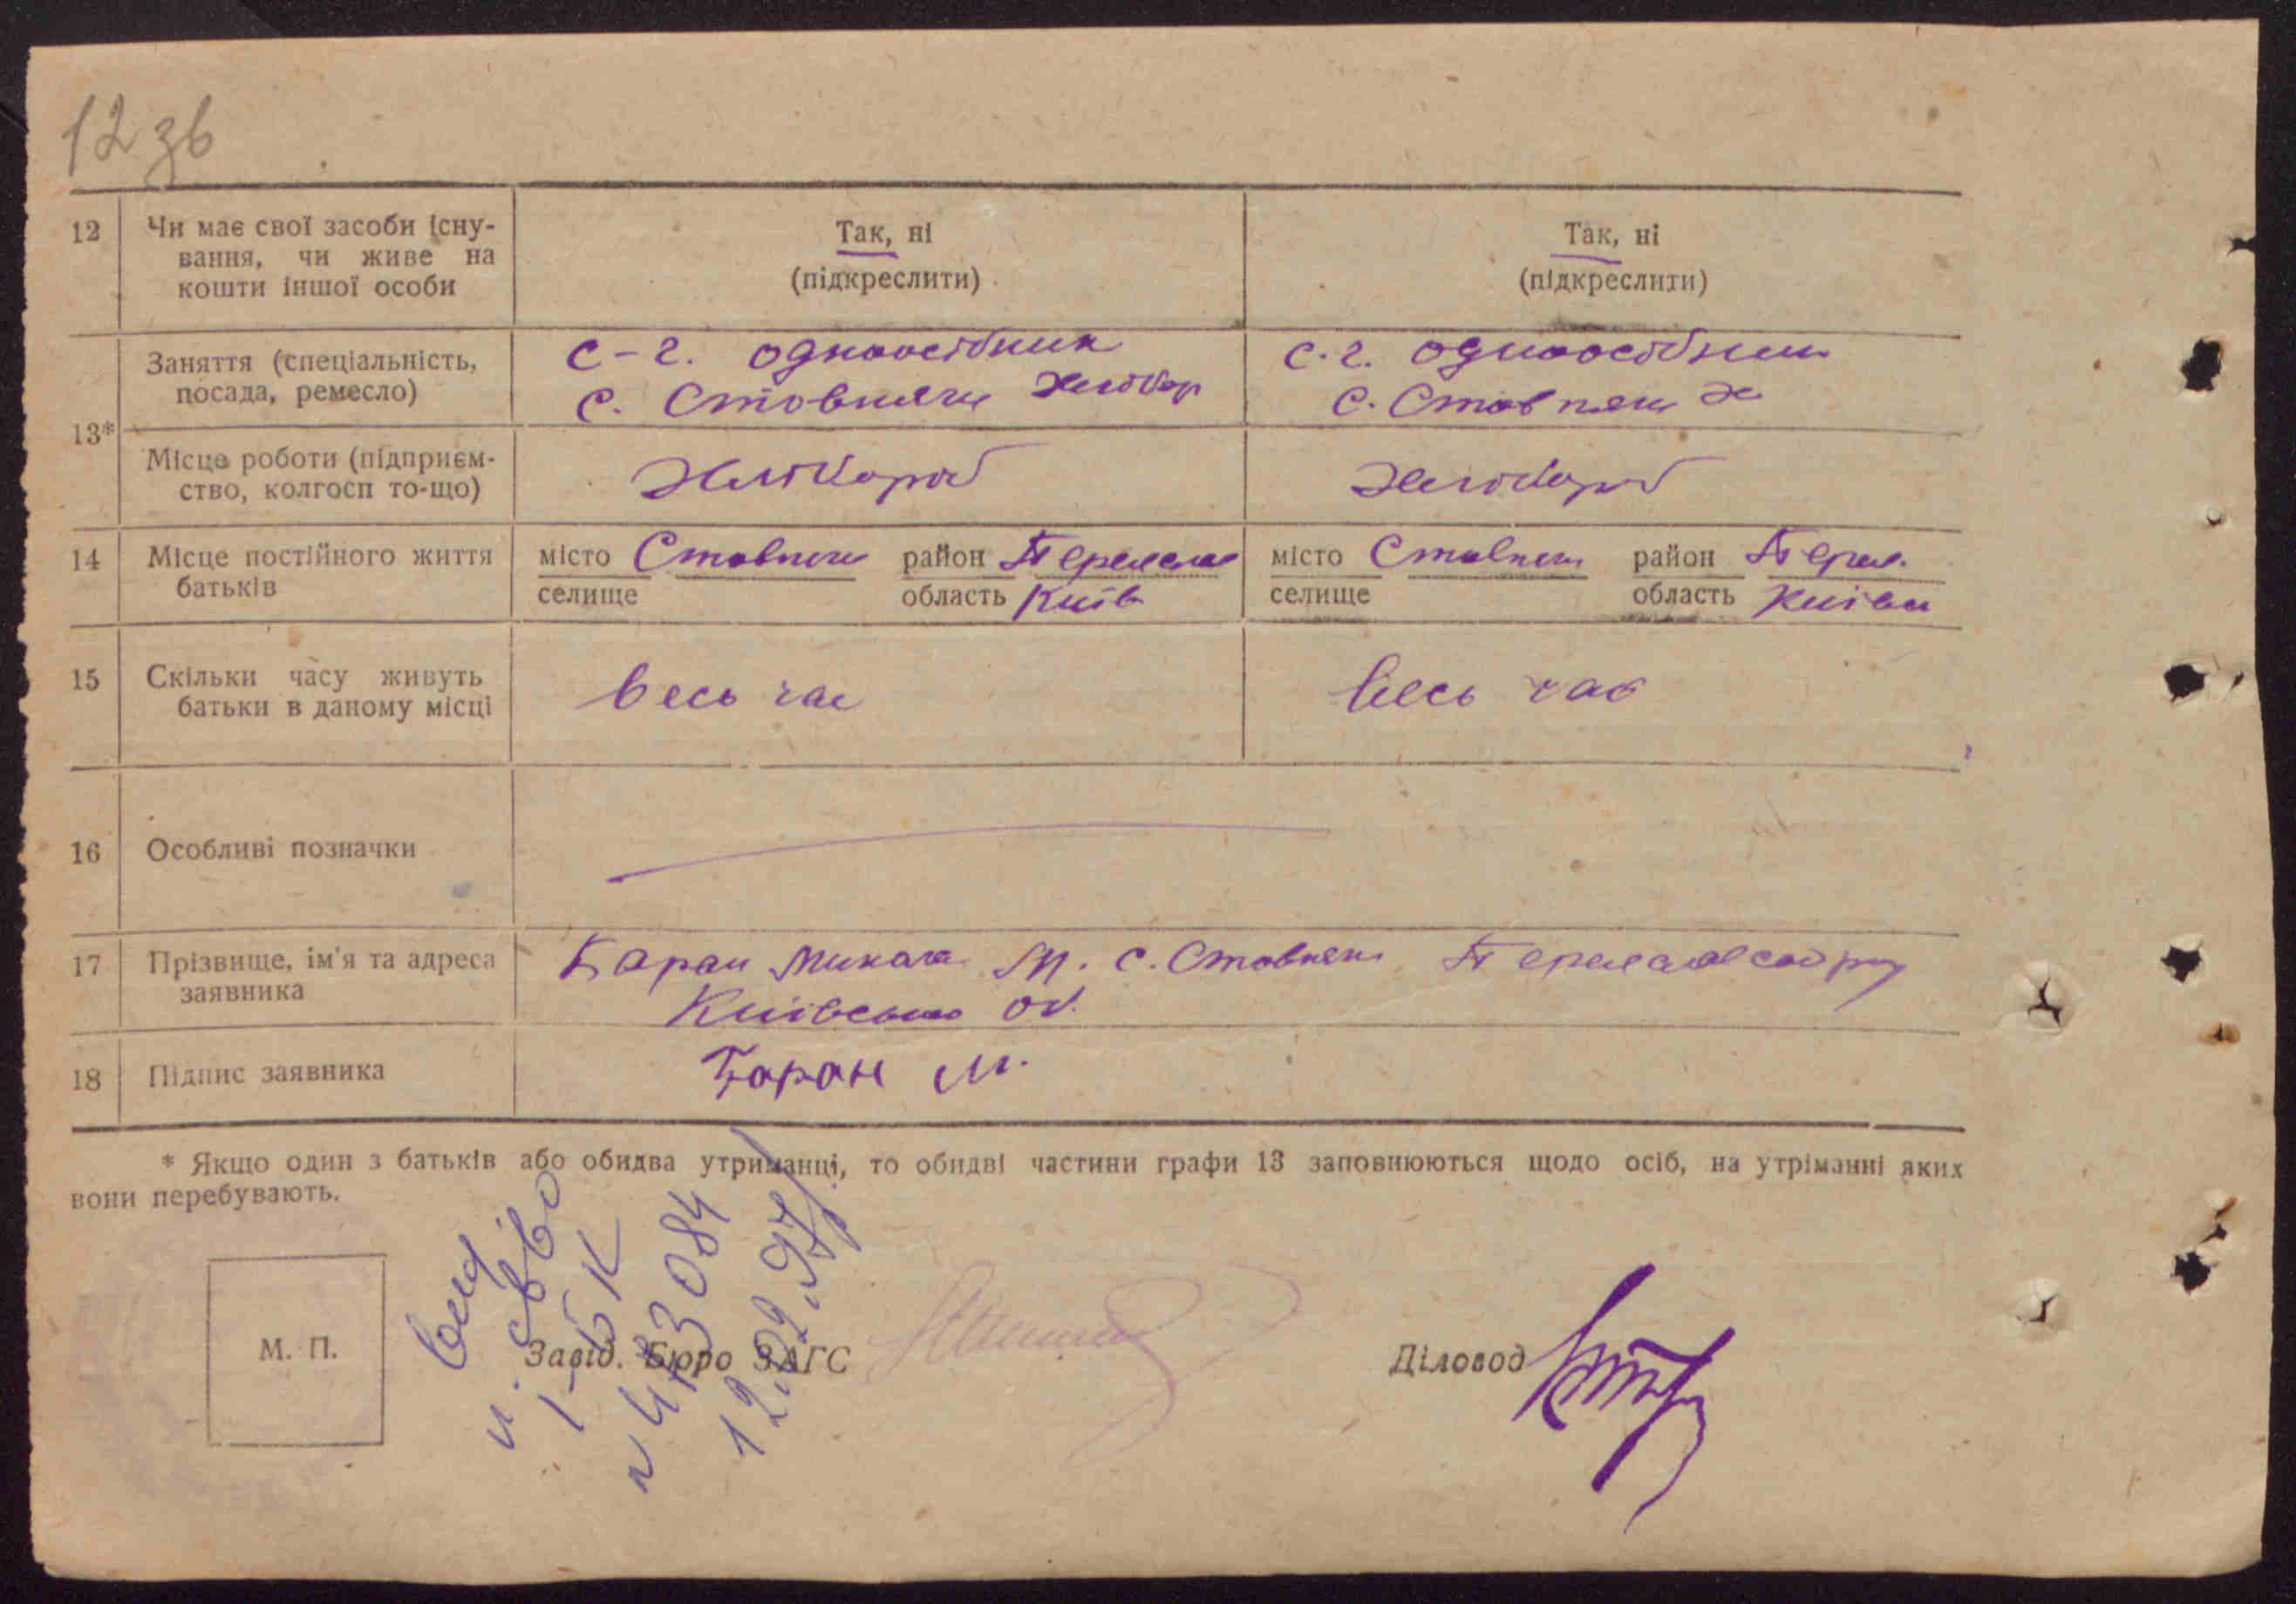 12 зв
12 Чи має свої засоби існу- Так, ні Так, ні
вання, чи живе на (підкреслити) (підкреслити)
кошти іншої особи
Заняття (спеціальність, С-г. одноосібник С.г. одноосібник
посада, ремесло) с. Стовпяги Хлібор с. Стовпяги Х
13*
Місце роботи (підприєм- Хлібороб Хлібороб
ство, колгосп то-що)
14 Місце постійного життя місто Стовпяги район Переяслав місто Стовпяги район Переяс.
батьків селище область Київ селище область Київсь
15 Скільки часу живуть весь час весь час
батьки в даному місці
16 Особливі позначки
17 Прізвище, ім'я та адреса Баран Микола М. с. Стовпяги Переяславськ р-ну
заявника Київської об.
18 Підпис заявника Баран М.
* Якщо один з батьків або обидва утриманці, то обидві частини графи 13 заповнюються щодо осіб, на утріманні яких
вони перебувають.
вид
п. свво
І-БК
N 443084
12.02.97
М. П. Завід. Бюро ЗАГС Діловод